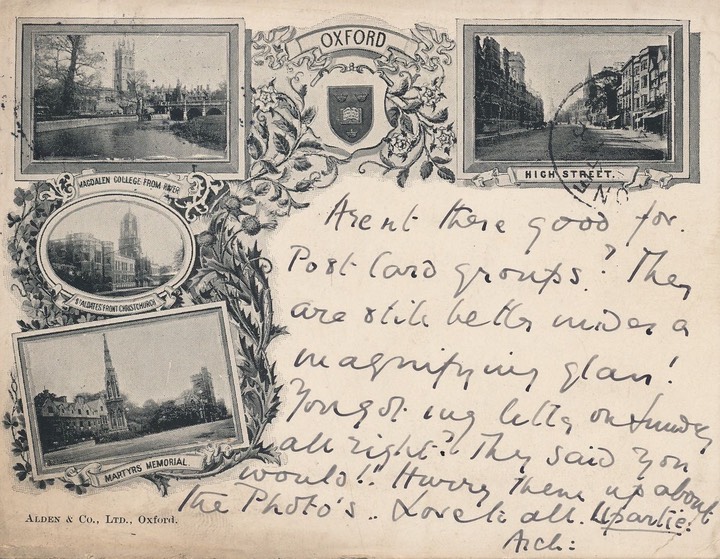 OXFORD
MAGDALEN COLLEGE FROM RIVER
HIGH STREET.
ST ALDATES FRONT CHRISTCHURCH
MARTYRS MEMORIAL.
Arent these good for
Post Card groups? They
are still better under a
magnifying glass!
You got my letter on Sunday
all right? They said you
would!! Hurry them up about
the Photo's .. Love to all.
Arch:
ALDEN & Co., LTD., Oxford.